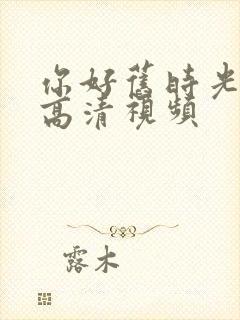 你好舊時光
高清視頻
露木